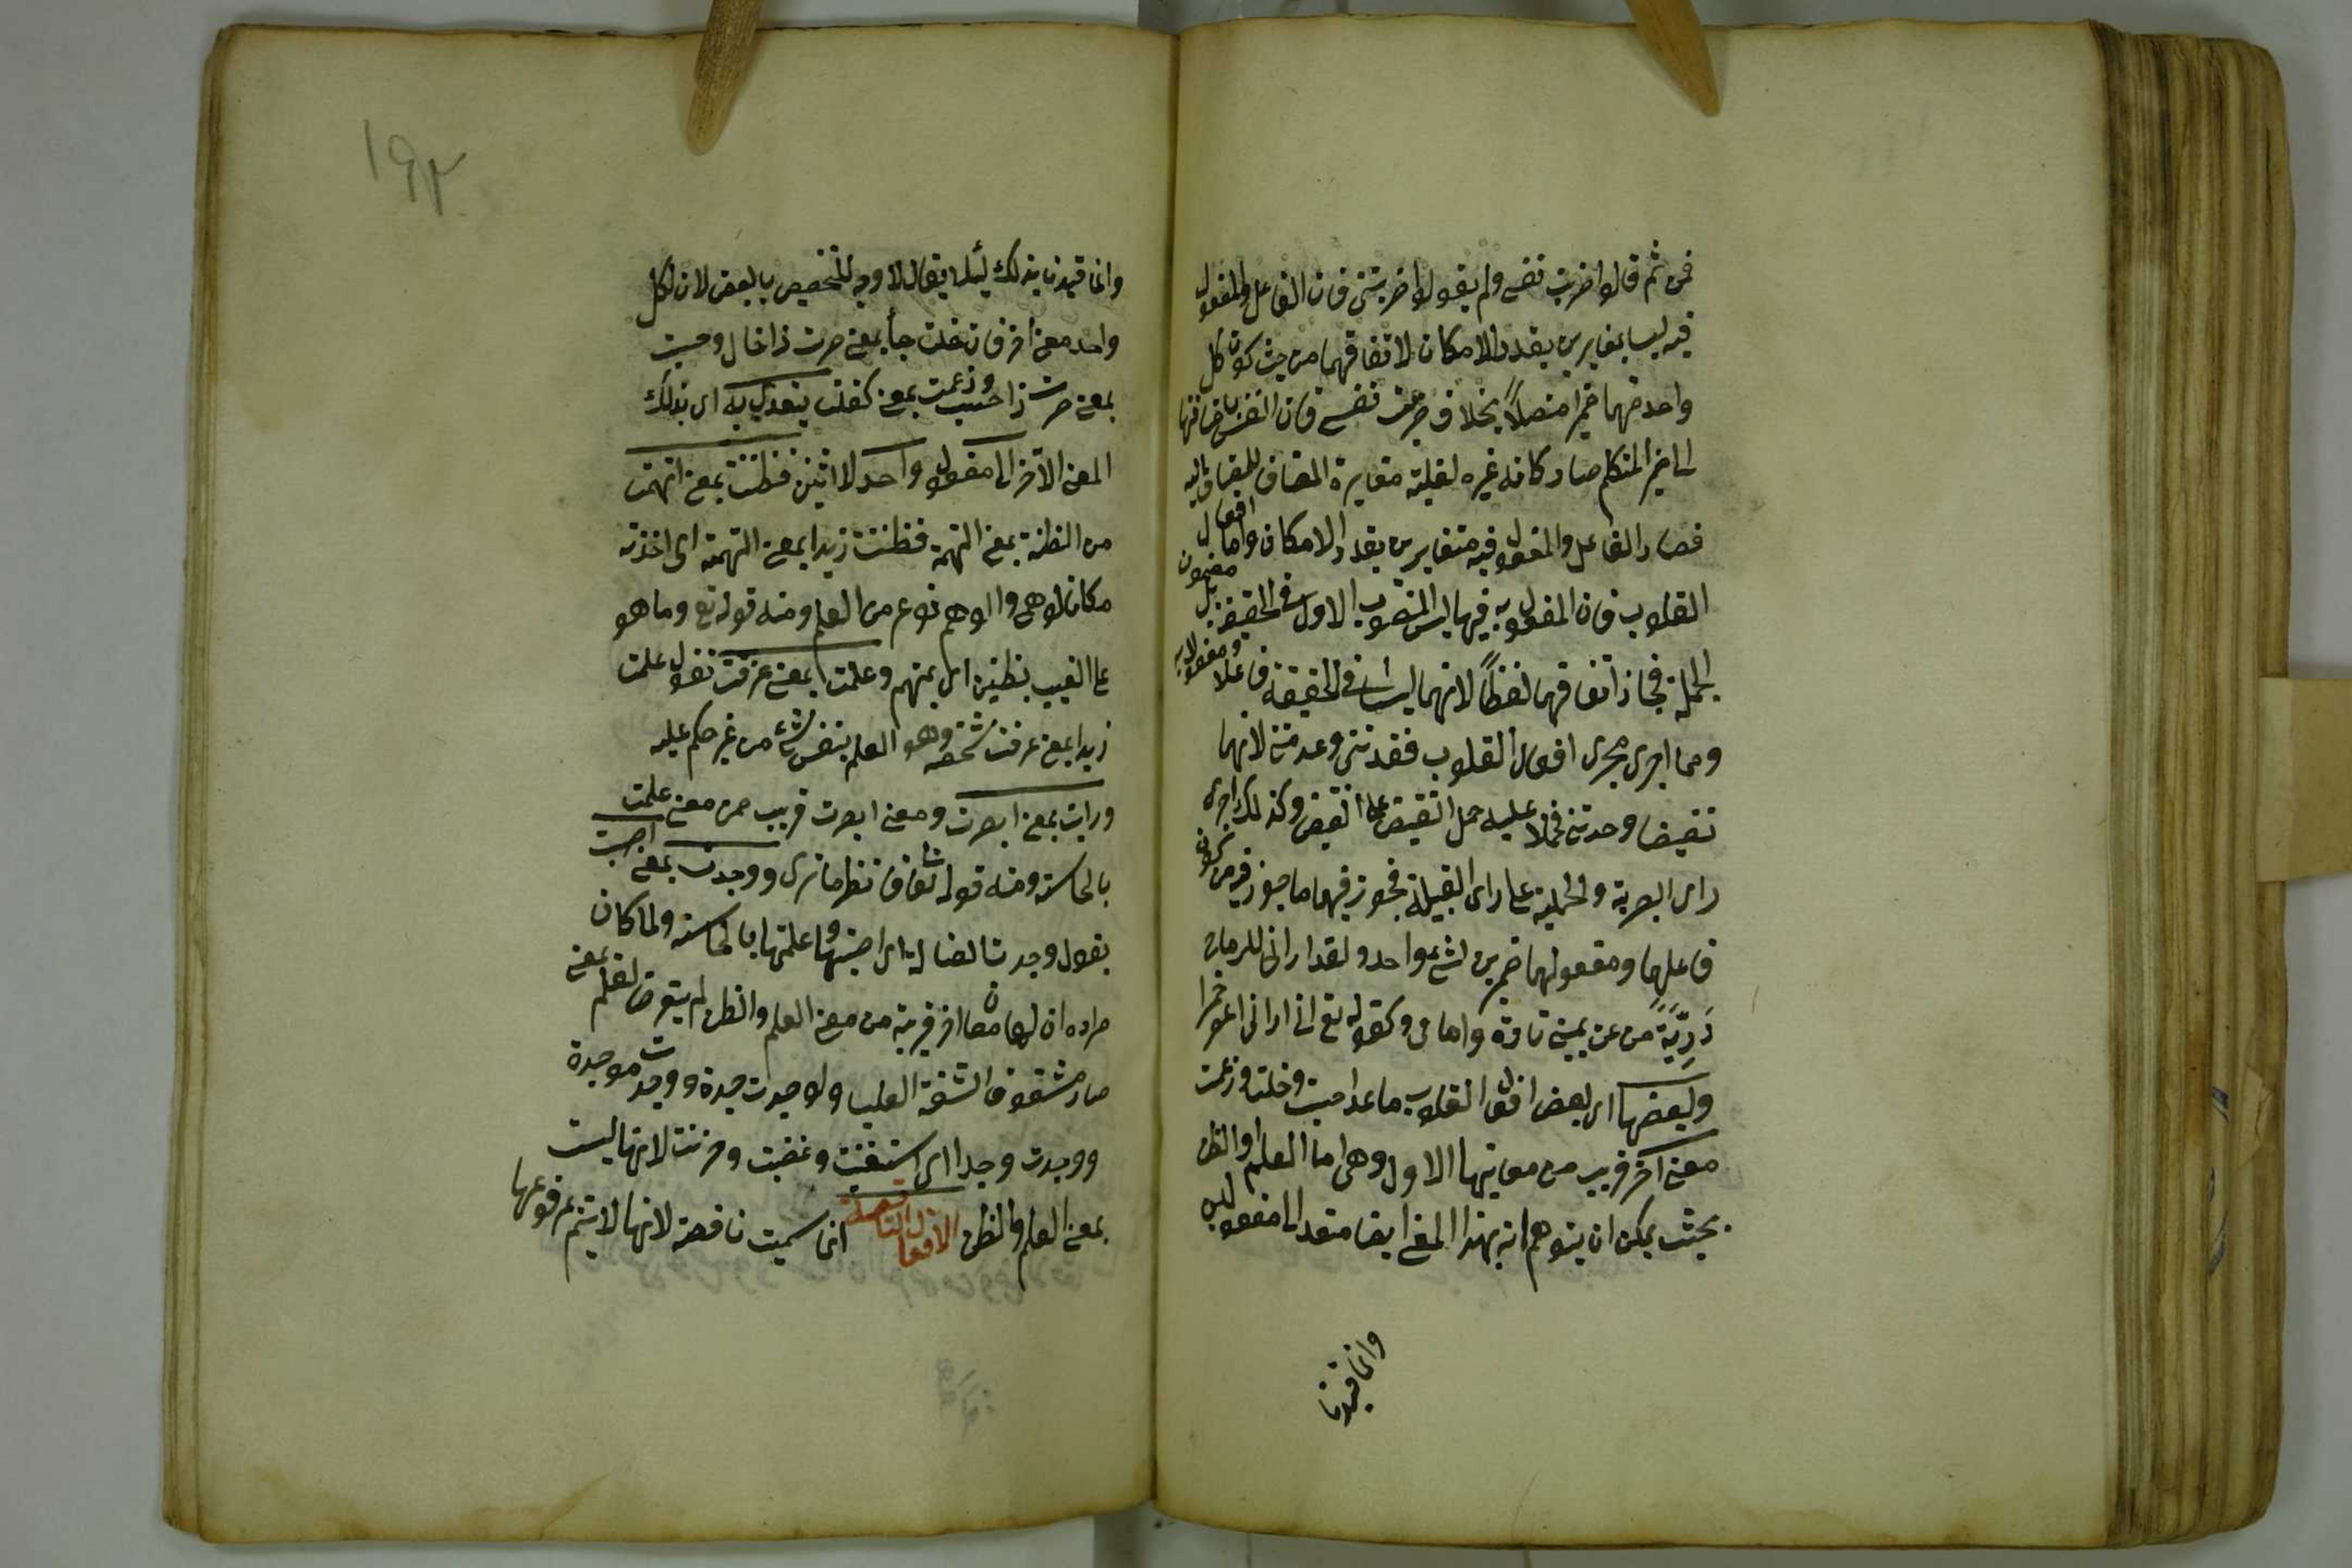 فمن ثم قالوا ضربت نفسي ولم يقولوا ضربتني فان الفاعل والمفعول
فيه ليسا بمغايرين بقدر الامكان لاتفاقهما من حيث كون كل
واحد منهما ضميرا متصلاً بخلاف ضربت نفسي فان النفس باضافتها
الى ضمير المتكلم صار كانه غيره لغلبة مغايرة المضاف للمضاف اليه
فصار الفاعل والمفعول فيه متغايرين بقدر الامكان واما افعال
القلوب فان المفعول به فيها ليس المنصوب الاول في الحقيقة بل مضمون
الجملة فجاز اتفاقهما لفظاً لانهما ليسا في الحقيقة فاعلا ومفعولا به
ومما اجرى مجرى افعال القلوب فقدتني وعدمتني لانهما
نقيضا وجدتني فحملا عليه حمل النقيض على النقيض وكذلك اجرى
راى البصرية والحلمية على راى القلبية فجوز فيهما ما جوز فيه من كون
فاعلهما ومفعولهما ضميرين لشئ واحد ولقد اراني للرماح
دَرِيَّةً من عن يميني تارة وامامي وكقوله تع اني اراني اعصر خمرا
ولبعضها اى لبعض افعال القلوب ما عدا حسبت وخلت وزعمت
معنى آخر قريب من معانيها الاول وهى اما العلم او الظن
بحيث يمكن ان يتوهم انه بهذا المعنى ايضا متعد الى مفعولين
وانما قيدنا
١٩٢
وانما قيدنا بذلك لئلا يقال لا وجه للتخصيص بالبعض لان لكل
واحد معنى آخر فان خلت جاء بمعنى صرت ذا خال وحسبت
بمعنى صرت ذا حسب وزعمت بمعنى كفلت يتعدى به اى بذلك
المعنى الآخر الى مفعول واحد لا اثنين فظننت بمعنى اتهمت
من الظنة بمعنى التهمة فظننت زيدا بمعنى اتهمته اى اخذته
مكانا لوهمى والوهم نوع من العلم ومنه قوله تع وما هو
على الغيب بظنين اى بمتهم وعلمت بمعنى عرفت تقول علمت
زيدا بمعنى عرفت شخصه وهو العلم بنفس شئ من غير حكم عليه
ورايت بمعنى ابصرت ومعنى ابصرت قريب من معنى علمت
بالحاسة ومنه قوله تعا فانظر ماذا ترى ووجدت بمعنى اصبت
تقول وجدت الضالة اى اصبتها وعلمتها بالحاسة ولما كان
مراده ان لها معان اخر قريبة من معنى العلم والظن لم يتعرض لعلم بمعنى
صار مشقوق الشفة العليا ولا وجدت جدة ووجدت موجدة
ووجدت وجدا اى استغنيت وغضبت وحزنت لانها ليست
بمعنى العلم والظن الافعال الناقصة انما سميت ناقصة لانها لا تتم بمرفوعها